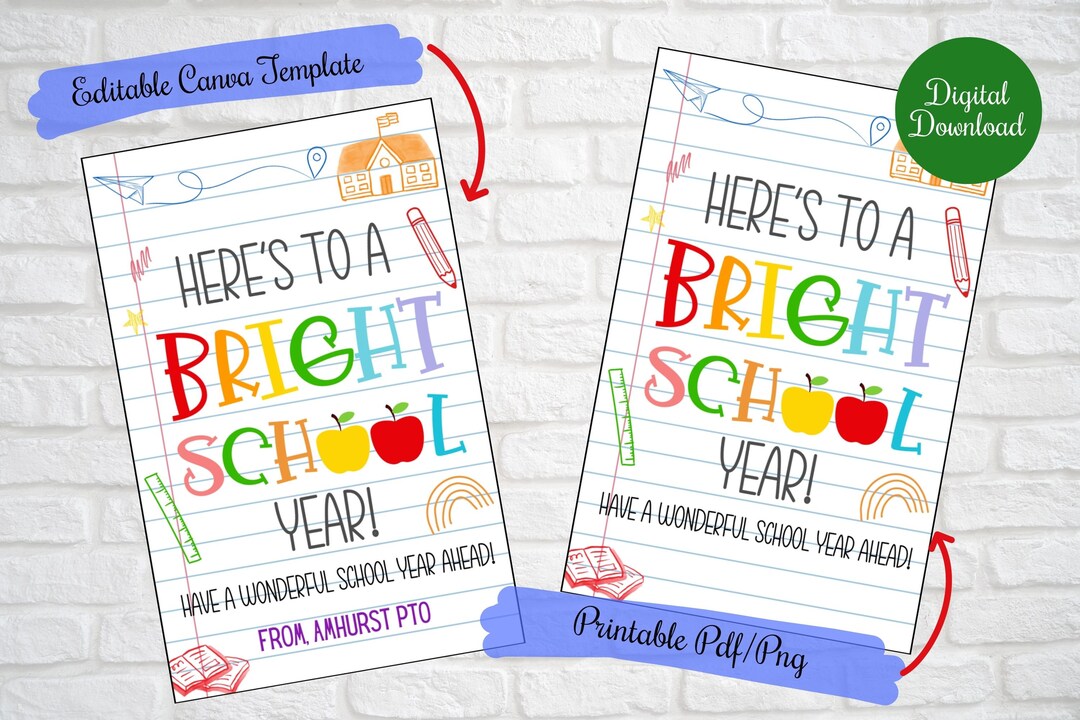 Editable Canva Template
HERE'S TO A
BRIGHT
SCHOOL
YEAR!
HAVE A WONDERFUL SCHOOL YEAR AHEAD!
FROM, AMHURST PTO
Digital
Download
HERE'S TO A
BRIGHT
SCHOOL
YEAR!
HAVE A WONDERFUL SCHOOL YEAR AHEAD!
Printable Pdf/Png